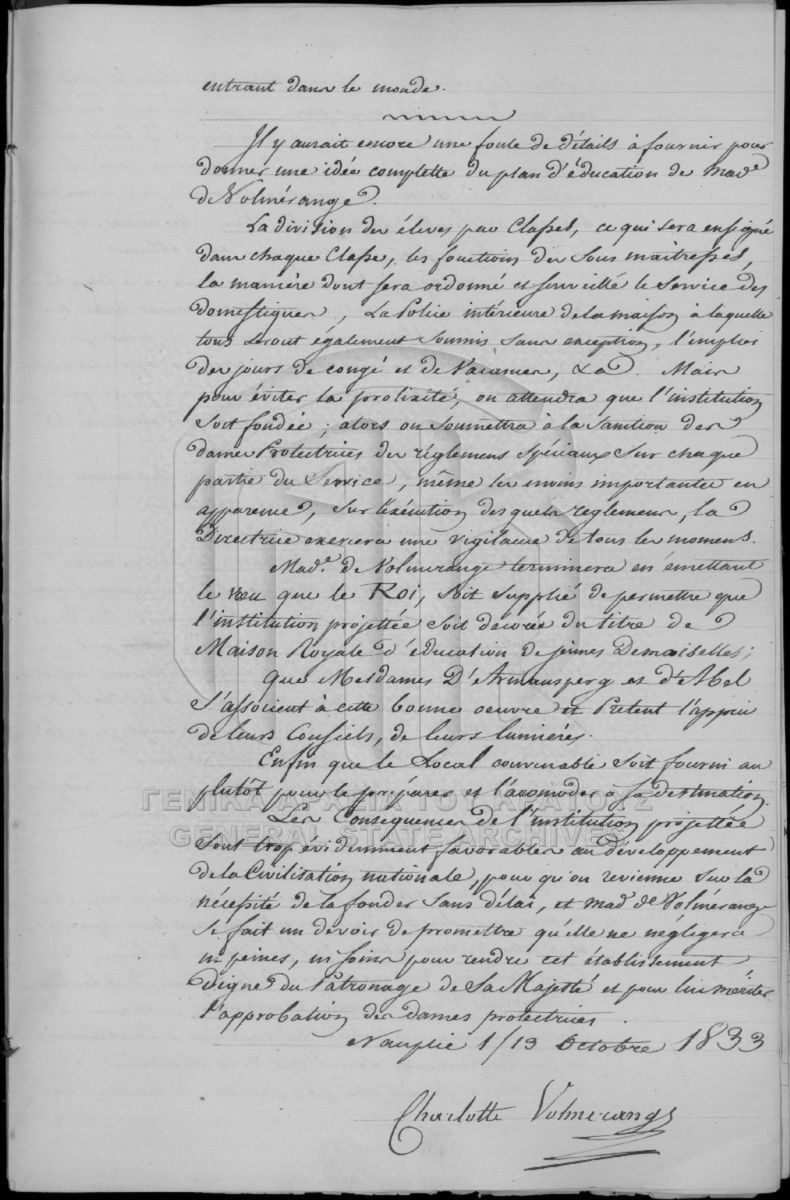 entrant dans le monde.
Il y aurait encore une foule de détails à fournir pour
donner une idée complette du plan d'éducation de mad.e
de Volmérange.
La division des élèves par Classes, ce qui sera enseigné
dans chaque Classe, les fonctions des Sous maitresses,
la manière dont sera ordonné et surveillé le Service des
Domestiques, La Police intérieure de la maison à laquelle
tous seront également soumis sans exception, l'emploi
des jours de congé et de Vacances, &a. Mais
pour éviter la prolixité, on attendra que l'institution
soit fondée; alors on soumettra à la Sanction des
dames Protectrices des réglemens spéciaux sur chaque
partie du Service, même les moins importantes en
apparence, sur l'exécution desquels reglemens, la
Directrice exercera une vigilance de tous les momens.
Mad.e de Volmerange terminera en émettant
le vœu que le Roi, soit supplié de permettre que
l'institution projettée soit décorée du titre de
Maison Royale d'éducation de jeunes Demoiselles;
Que Mesdames D'Armansperg et d'Abel
s'associent à cette bonne oeuvre et Prêtent l'appui
de leurs Conseils, de leurs lumières.
Enfin que le Local convenable soit fourni au
plutôt pour le préparer et l'accomoder à sa destination.
ΓΕΝΙΚΑ ΑΡΧΕΙΑ ΤΟΥ ΚΡΑΤΟΥΣ
Les Consequences de l'institution projettée
GENERAL STATE ARCHIVES
sont trop évidemment favorables au développement
de la Civilisation nationale, pour qu'on revienne sur la
nécessité de la fonder sans délai, et mad.e de Volmérange
se fait un devoir de promettre qu'elle ne négligera
ni peines, ni soins pour rendre cet établissement
Digne du Patronage de Sa Majesté et pour lui mériter
l'approbation des dames protectrices.
Nauplie 1/13 Octobre 1833
Charlotte Volmerange